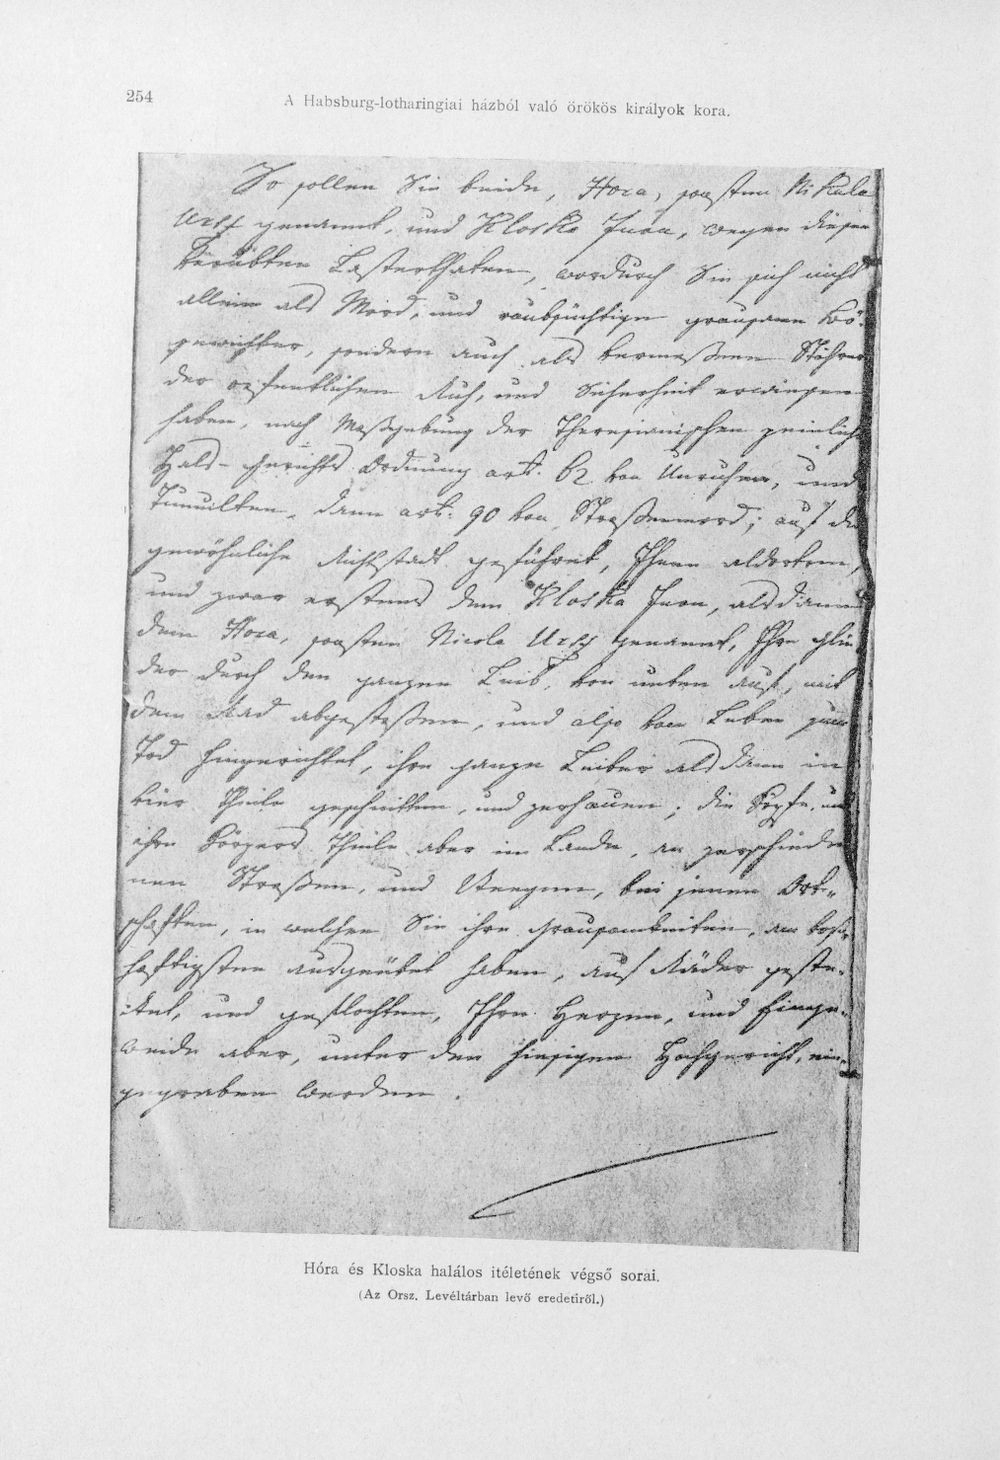 254
A Habsburg-lotharingiai házból való örökös királyok kora.
So sollen Sie beide, Hora, sonsten Nikula
Ursz genannt, und Kloska Juon, wegen diesen
verübten Lasterthaten, wordurch Sie sich nicht
allein als Mord, und raubsüchtige grausame Bö-
gewichter, sondern auch als vermessene Stöhrer
der offentlichen Ruh, und Sicherheit erwiesen
haben, nach Maßgebung der Theresianischen peinlich
Hals-Gerichts Ordnung art. 62 von Unruhen, und
Tumulten, dann art. 90 von Straßenmord; auf die
gewöhnliche Richtstadt geführet, Ihnen aldorten,
und zwar erstens dem Kloska Juon, alsdann
dem Hora, sonsten Nicola Ursz genannt, Ihre Glie
der durch den ganzen Leib, von unten auf, mit
dem Rad abgestossen, und also vom Leben zum
Tod hingerichtet, ihre ganze Leiber alsdann in
vier Theile geschnitten, und zerhauen; die Köpfe, und
ihre Körpers Theile aber im Lande, an verschiede
nen Straßen, und Weegen, bei jenen Ort-
schaften, in welchen Sie ihre Grausamkeiten, am bos-
haftigsten ausgeübet haben, auf Räder geste-
cket, und geflochten, Ihre Herzen, und Einge-
weide aber, unter den hiesigen Hochgericht, ein-
gegraben werden.
Hóra és Kloska halálos itéletének végső sorai.
(Az Orsz. Levéltárban levő eredetiről.)